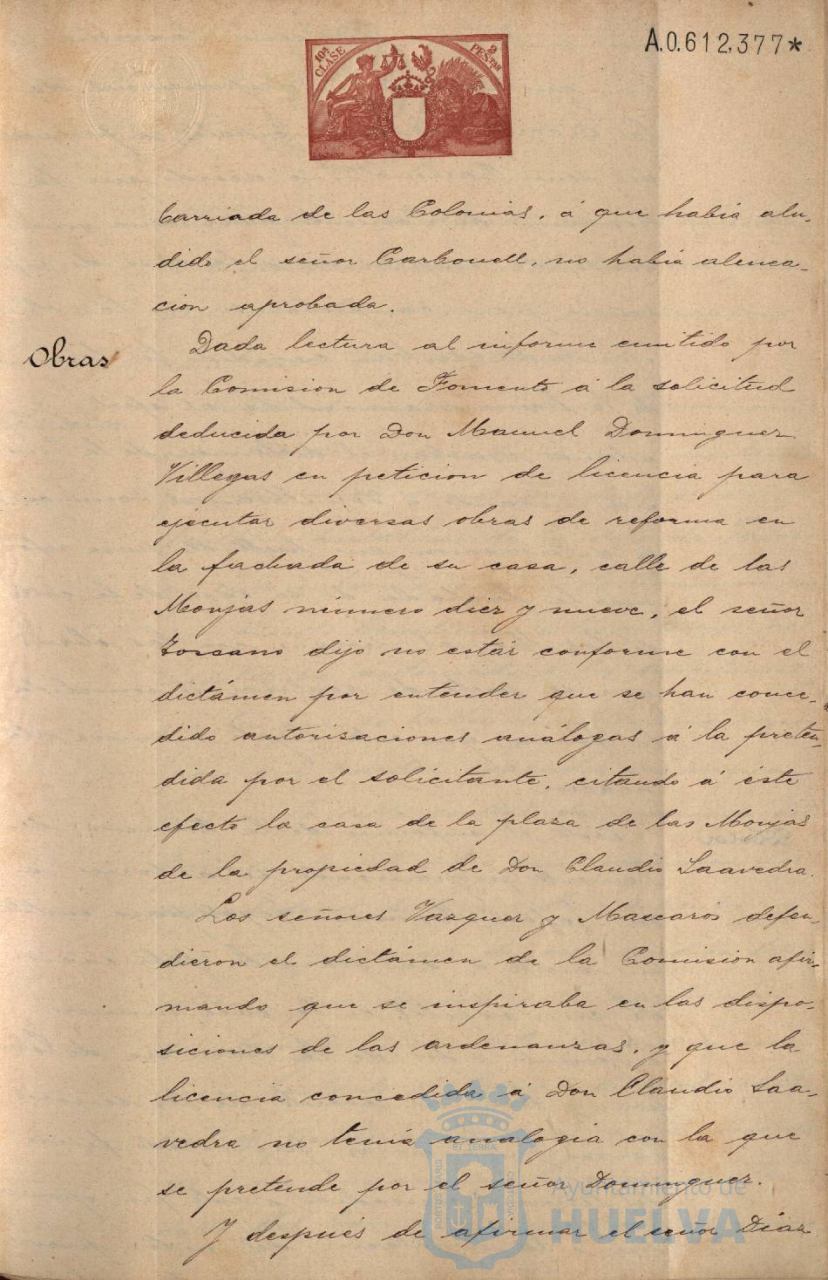 A.0.612.377*
10ª CLASE
2 PESTAS
barriada de las Colonias, á que habia alu-
dido el señor Carbonell, no habia alinea-
cion aprobada.
Obras
Dada lectura al informe emitido por
la Comision de Fomento á la solicitud
deducida por Don Manuel Dominguez
Villegas en peticion de licencia para
ejecutar diversas obras de reforma en
la fachada de su casa, calle de las
Monjas número diez y nueve, el señor
Toscano dijo no estár conforme con el
dictámen por entender que se han conce-
dido autorisaciones análogas á la preten-
dida por el solicitante, citando á éste
efecto la casa de la plaza de las Monjas
de la propiedad de Don Claudio Saavedra.
Los señores Vazquez y Mascarós defen-
dieron el dictámen de la Comision afir-
mando que se inspiraba en las dispo-
siciones de las ordenanzas, y que la
licencia concedida á Don Claudio Saa-
vedra no tenia analogia con la que
se pretende por el señor Dominguez.
Y después de afirmar el señor Diaz
Ayuntamiento de
HUELVA